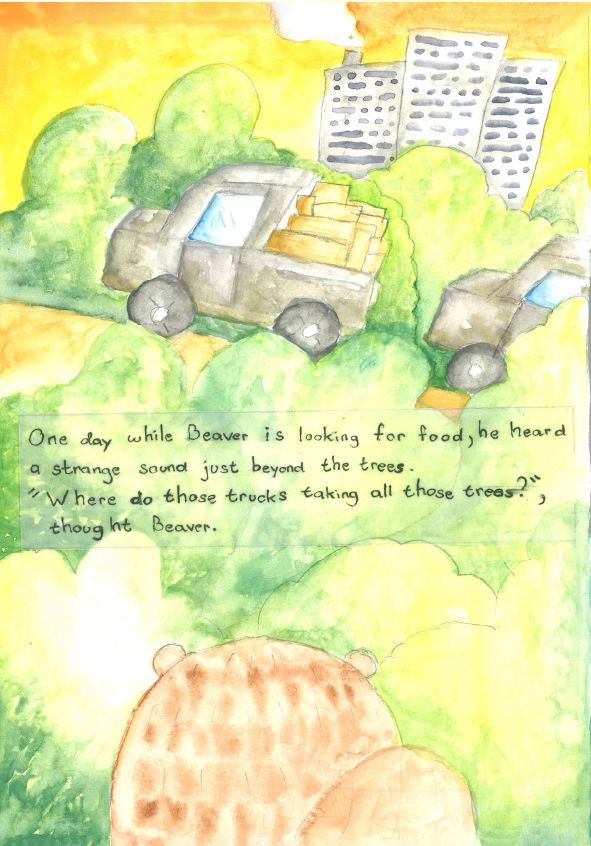 One day while Beaver is looking for food, he heard
a strange sound just beyond the trees.
"Where do those trucks taking all those trees?",
thought Beaver.